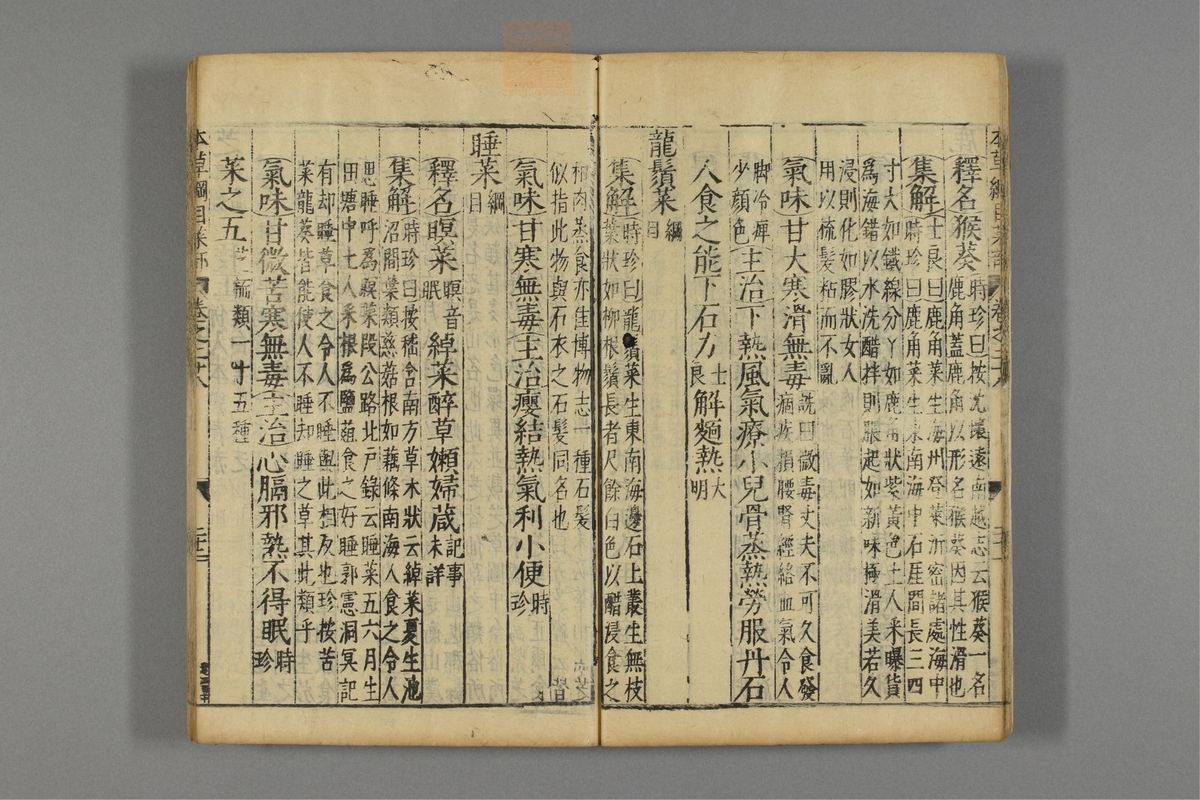 釋名猴葵時珍曰按沈懷遠南越志云猴葵一名
鹿角蓋鹿角以形名猴葵因其性滑也
集解士良曰鹿角菜生海州登萊沂密諸處海中
時珍曰鹿角菜生東南海中石厓間長三四
寸大如鐵線分丫如鹿角狀紫黃色土人采曝貨
爲海錯以水洗醋拌則脹起如新味極滑美若久
浸則化如膠狀女人
用以梳髮粘而不亂
氣味甘大寒滑無毒詵曰微毒丈夫不可久食發
痼疾損腰腎經絡血氣令人
脚冷痺
少顏色主治下熱風氣療小兒骨蒸熱勞服丹石
人食之能下石力士良解麪熱大明
龍鬚菜綱目
集解時珍曰龍鬚菜生東南海邊石上叢生無枝
葉狀如柳根鬚長者尺餘白色以醋浸食之
和肉蒸食亦佳博物志一種石髮
似指此物與石衣之石髮同名也
氣味甘寒無毒主治癭結熱氣利小便時珍
睡菜綱目
釋名瞑菜瞑音眠綽菜醉草嬾婦葴記事未詳
集解時珍曰按嵇含南方草木狀云綽菜夏生池
沼間葉類慈菇根如藕條南海人食之令人
思睡呼爲瞑菜段公路北戶錄云睡菜五六月生
田塘中土人采根爲鹽菹食之好睡郭憲洞冥記
有却睡草食之令人不睡與此相反也珍按苦
菜龍葵皆能使人不睡却睡之草其此類乎
氣味甘微苦寒無毒主治心膈邪熱不得眠時珍
菜之五芝栭類一十五種
本草綱目菜部 卷之二十八